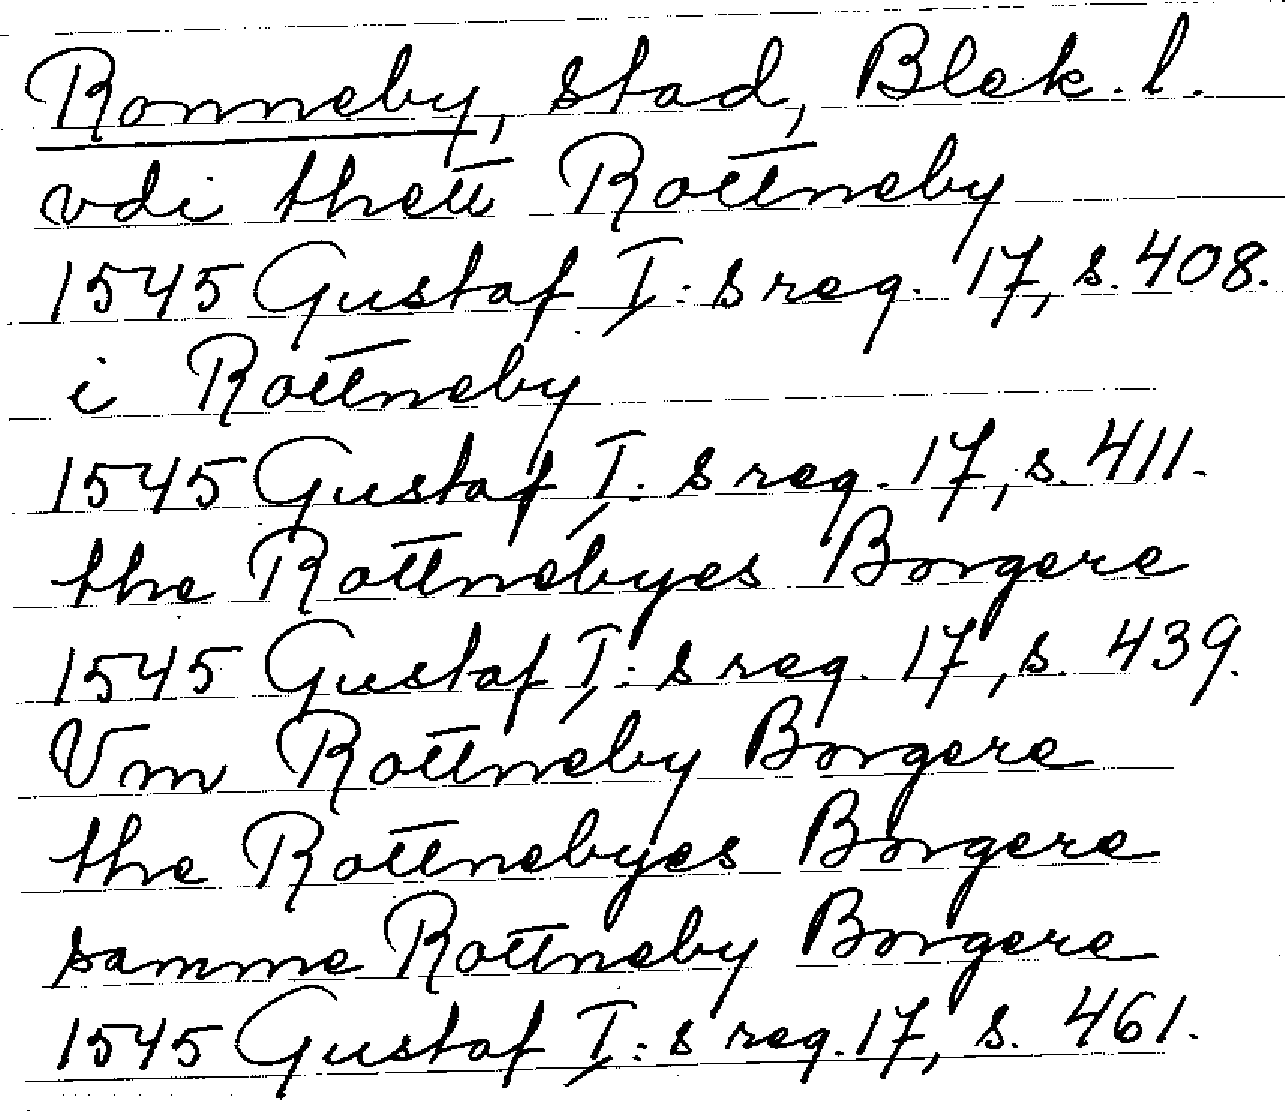 Ronneby, stad, Blek. l.
vdi thett Rottneby
1545 Gustaf I: s reg. 17, s. 408.
i Rottneby
1545 Gustaf I: s reg. 17, s. 411.
the Rottnebyes Borgere
1545 Gustaf I: s reg. 17, s. 439.
Vm Rottneby Borgere
the Rottnebyes Borgere
samme Rottneby Borgere
1545 Gustaf I: s reg. 17, s. 461.